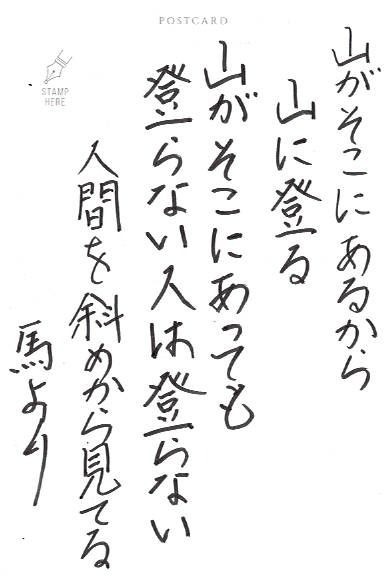 POSTCARD
STAMP
HERE
山がそこにあるから
山に登る
山がそこにあっても
登らない人は登らない
人間を斜めから見てる
馬より